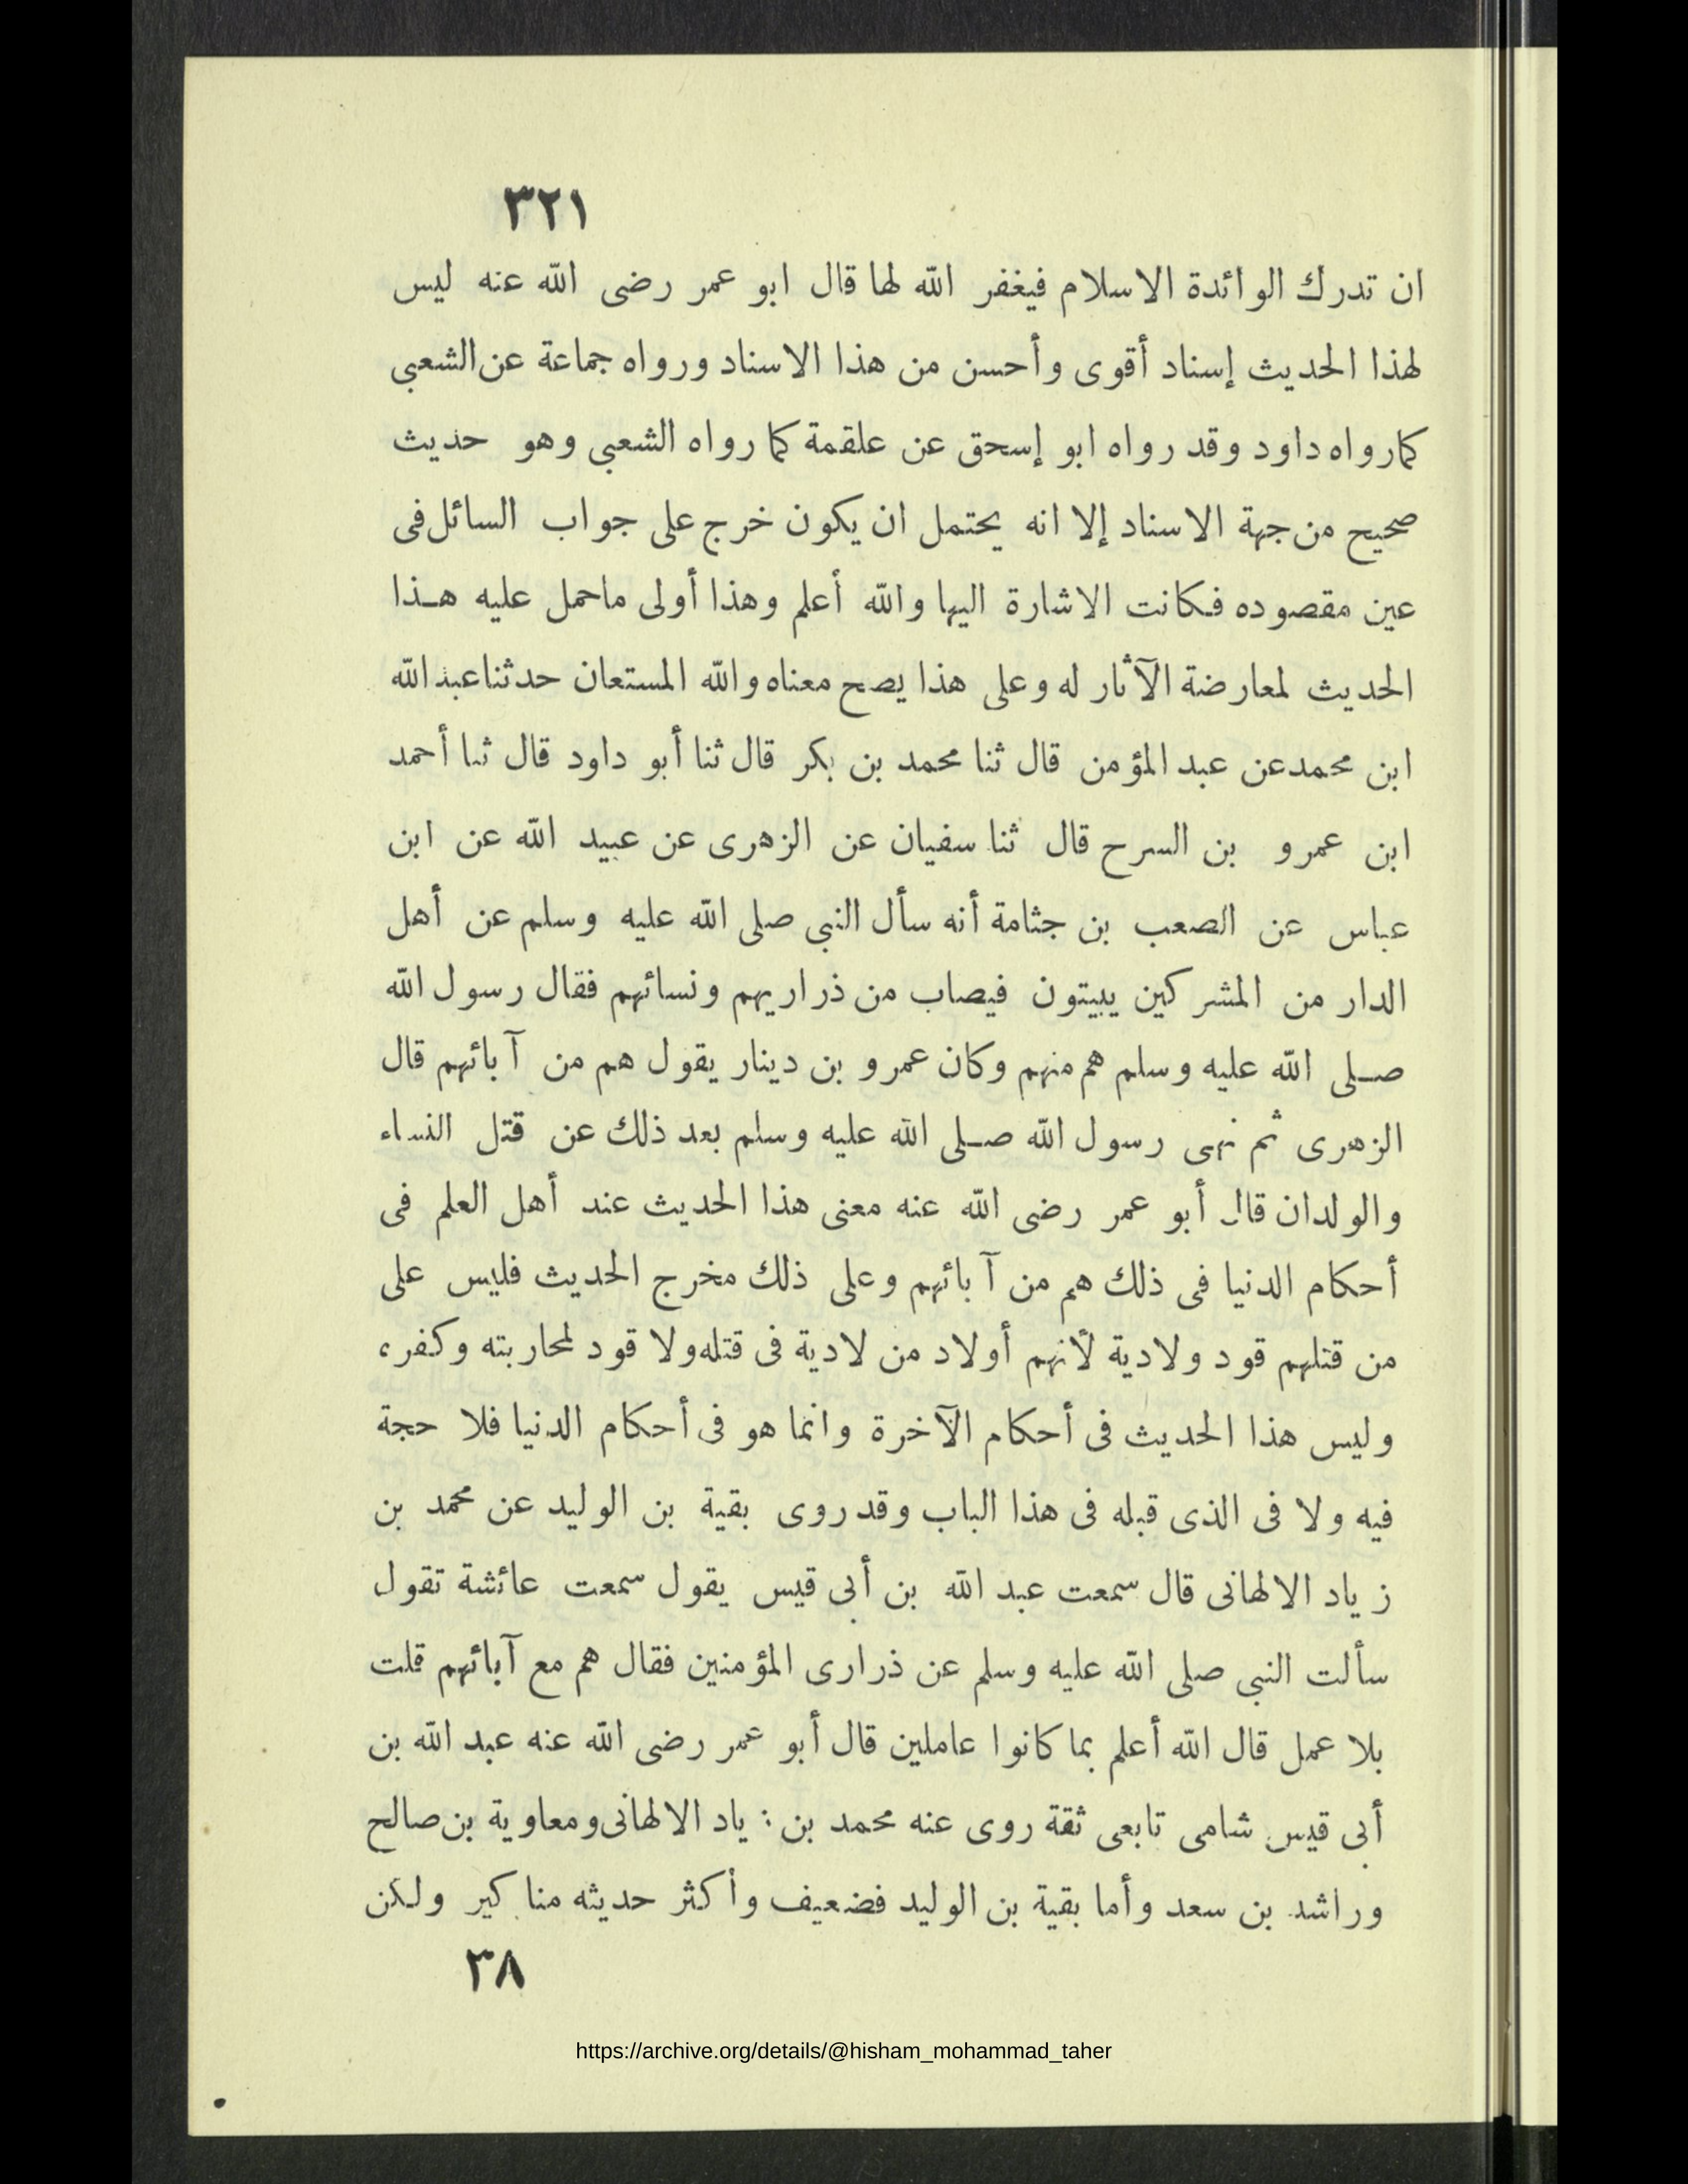 ٣٢١
ان تدرك الوائدة الاسلام فيغفر الله لها قال ابو عمر رضى الله عنه ليس
لهذا الحديث إسناد أقوى وأحسن من هذا الاسناد ورواه جماعة عن الشعبى
كما رواه داود وقد رواه ابو إسحق عن علقمة كما رواه الشعبى وهو حديث
صحيح من جهة الاسناد إلا انه يحتمل ان يكون خرج على جواب السائل فى
عين مقصوده فكانت الاشارة اليها والله أعلم وهذا أولى ماحمل عليه هـذا
الحديث لمعارضة الآثار له وعلى هذا يصح معناه والله المستعان حدثنا عبد الله
ابن محمد عن عبد المؤمن قال ثنا محمد بن بكر قال ثنا أبو داود قال ثنا أحمد
ابن عمرو بن السرح قال ثنا سفيان عن الزهرى عن عبيد الله عن ابن
عباس عن الصعب بن جثامة أنه سأل النبى صلى الله عليه وسلم عن أهل
الدار من المشركين يبيتون فيصاب من ذراريهم ونسائهم فقال رسول الله
صـلى الله عليه وسلم هم منهم وكان عمرو بن دينار يقول هم من آبائهم قال
الزهرى ثم نهى رسول الله صـلى الله عليه وسلم بعد ذلك عن قتل النساء
والولدان قال أبو عمر رضى الله عنه معنى هذا الحديث عند أهل العلم فى
أحكام الدنيا فى ذلك هم من آبائهم وعلى ذلك مخرج الحديث فليس على
من قتلهم قود ولادية لأنهم أولاد من لادية فى قتله ولا قود لمحاربته وكفره
وليس هذا الحديث فى أحكام الآخرة وانما هو فى أحكام الدنيا فلا حجة
فيه ولا فى الذى قبله فى هذا الباب وقد روى بقية بن الوليد عن محمد بن
زياد الالهانى قال سمعت عبد الله بن أبى قيس يقول سمعت عائشة تقول
سألت النبى صلى الله عليه وسلم عن ذرارى المؤمنين فقال هم مع آبائهم قلت
بلا عمل قال الله أعلم بما كانوا عاملين قال أبو عمر رضى الله عنه عبد الله بن
أبى قيس شامى تابعى ثقة روى عنه محمد بن زياد الالهانى ومعاوية بن صالح
وراشد بن سعد وأما بقية بن الوليد فضعيف وأكثر حديثه مناكير ولكن
٣٨
https://archive.org/details/@hisham_mohammad_taher